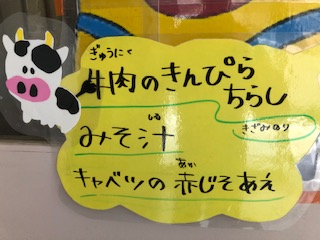 ぎゅうにく
牛肉のきんぴら
ちらし
きざみのり
しる
みそ汁
あか
キャベツの赤じそあえ